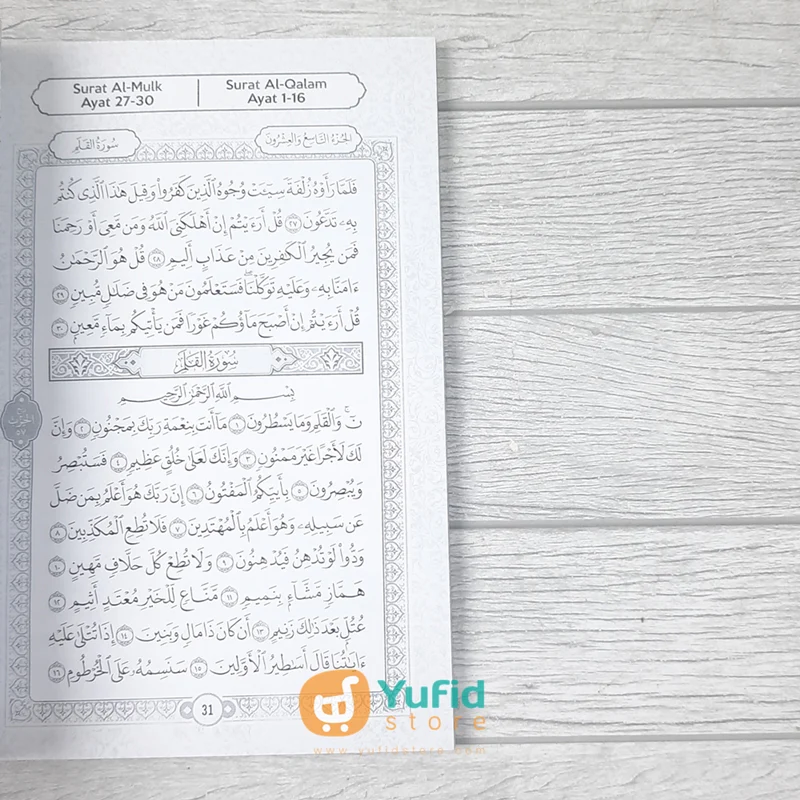 Surat Al-Mulk
Ayat 27-30
Surat Al-Qalam
Ayat 1-16
سُورَةُ القَلَمِ
الجُزْءُ التَّاسِعُ وَالعِشْرُونَ
فَلَمَّا رَأَوْهُ زُلْفَةً سِيٓـَٔتْ وُجُوهُ ٱلَّذِينَ كَفَرُواْ وَقِيلَ هَٰذَا ٱلَّذِى كُنتُم
بِهِۦ تَدَّعُونَ ٢٧ قُلْ أَرَءَيْتُمْ إِنْ أَهْلَكَنِىَ ٱللَّهُ وَمَن مَّعِىَ أَوْ رَحِمَنَا
فَمَن يُجِيرُ ٱلْكَٰفِرِينَ مِنْ عَذَابٍ أَلِيمٍ ٢٨ قُلْ هُوَ ٱلرَّحْمَٰنُ
ءَامَنَّا بِهِۦ وَعَلَيْهِ تَوَكَّلْنَاۖ فَسَتَعْلَمُونَ مَنْ هُوَ فِى ضَلَٰلٍ مُّبِينٍ ٢٩
قُلْ أَرَءَيْتُمْ إِنْ أَصْبَحَ مَآؤُكُمْ غَوْرًا فَمَن يَأْتِيكُم بِمَآءٍ مَّعِينٍۭ ٣٠
سُورَةُ القَلَمِ
بِسْمِ ٱللَّهِ ٱلرَّحْمَٰنِ ٱلرَّحِيمِ
نٓۚ وَٱلْقَلَمِ وَمَا يَسْطُرُونَ ١ مَآ أَنتَ بِنِعْمَةِ رَبِّكَ بِمَجْنُونٍ ٢ وَإِنَّ
لَكَ لَأَجْرًا غَيْرَ مَمْنُونٍ ٣ وَإِنَّكَ لَعَلَىٰ خُلُقٍ عَظِيمٍ ٤ فَسَتُبْصِرُ
وَيُبْصِرُونَ ٥ بِأَييِّكُمُ ٱلْمَفْتُونُ ٦ إِنَّ رَبَّكَ هُوَ أَعْلَمُ بِمَن ضَلَّ
عَن سَبِيلِهِۦ وَهُوَ أَعْلَمُ بِٱلْمُهْتَدِينَ ٧ فَلَا تُطِعِ ٱلْمُكَذِّبِينَ ٨
وَدُّواْ لَوْ تُدْهِنُ فَيُدْهِنُونَ ٩ وَلَا تُطِعْ كُلَّ حَلَّافٍ مَّهِينٍ ١٠
هَمَّازٍ مَّشَّآءٍۭ بِنَمِيمٍ ١١ مَّنَّاعٍ لِّلْخَيْرِ مُعْتَدٍ أَثِيمٍ ١٢
عُتُلٍّۭ بَعْدَ ذَٰلِكَ زَنِيمٍ ١٣ أَن كَانَ ذَا مَالٍ وَبَنِينَ ١٤ إِذَا تُتْلَىٰ عَلَيْهِ
ءَايَٰتُنَا قَالَ أَسَٰطِيرُ ٱلْأَوَّلِينَ ١٥ سَنَسِمُهُۥ عَلَى ٱلْخُرْطُومِ ١٦
31
Yufid
store
www.yufidstore.com